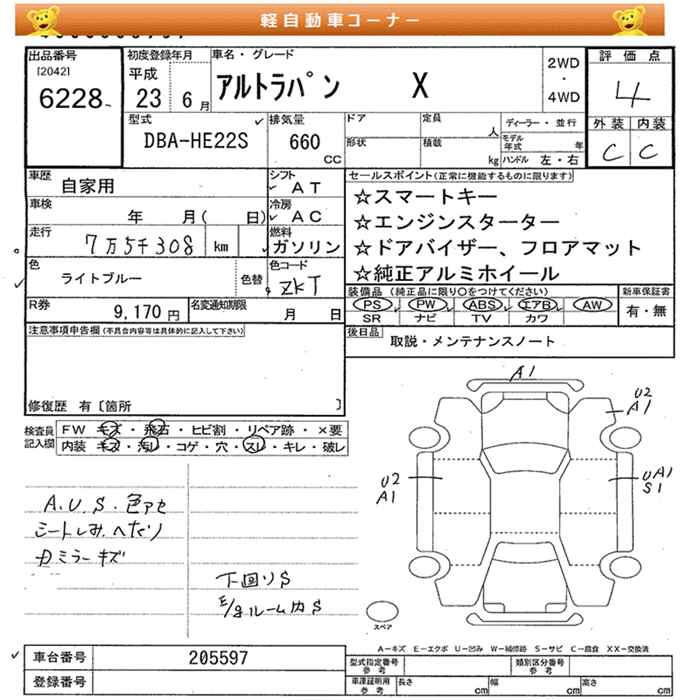 軽自動車コーナー
出品番号
[2042]
6228
初度登録年月
平成
23 年 6 月
車名・グレード
アルトラパン X
2WD
・
4WD
評価点
4
外装 内装
C C
型式
DBA-HE22S
排気量
660
CC
ドア
形状
定員
人
積載
kg
ディーラー・並行
モデル年式 年
ハンドル 左・右
車歴
自家用
シフト
AT
車検
年 月( 日)
冷房
AC
走行
7万5千308 km
燃料
ガソリン
色
ライトブルー
色替
色コード
ZKT
R券
9,170 円
名変通知期限
月 日
セールスポイント(正常に機能するものに限ります)
☆スマートキー
☆エンジンスターター
☆ドアバイザー、フロアマット
☆純正アルミホイール
装備品 (純正品に限り○をつけてください)
PS PW ABS エアB AW
SR ナビ TV カワ
新車保証書
有・無
後日品
取説・メンテナンスノート
注意事項申告欄(不具合内容等は具体的に記入して下さい)
修復歴 有〔箇所 〕
検査員記入欄
FW キズ・飛石・ヒビ割・リペア跡・×要
内装 キズ・汚レ・コゲ・穴・スレ・キレ・破レ
A.U.S.色アセ
シートしみ.へたり
ミラーキズ
下回りS
E/gルーム内S
A1
U2
A1
U2
A1
UA1
S1
スペア
A-キズ E-エクボ U-凹み W-補修跡 S-サビ C-腐食 XX-交換済
車台番号 205597
登録番号
型式指定番号
参考
類別区分番号
参考
車庫証明用
参考
長さ cm 幅 cm 高さ cm